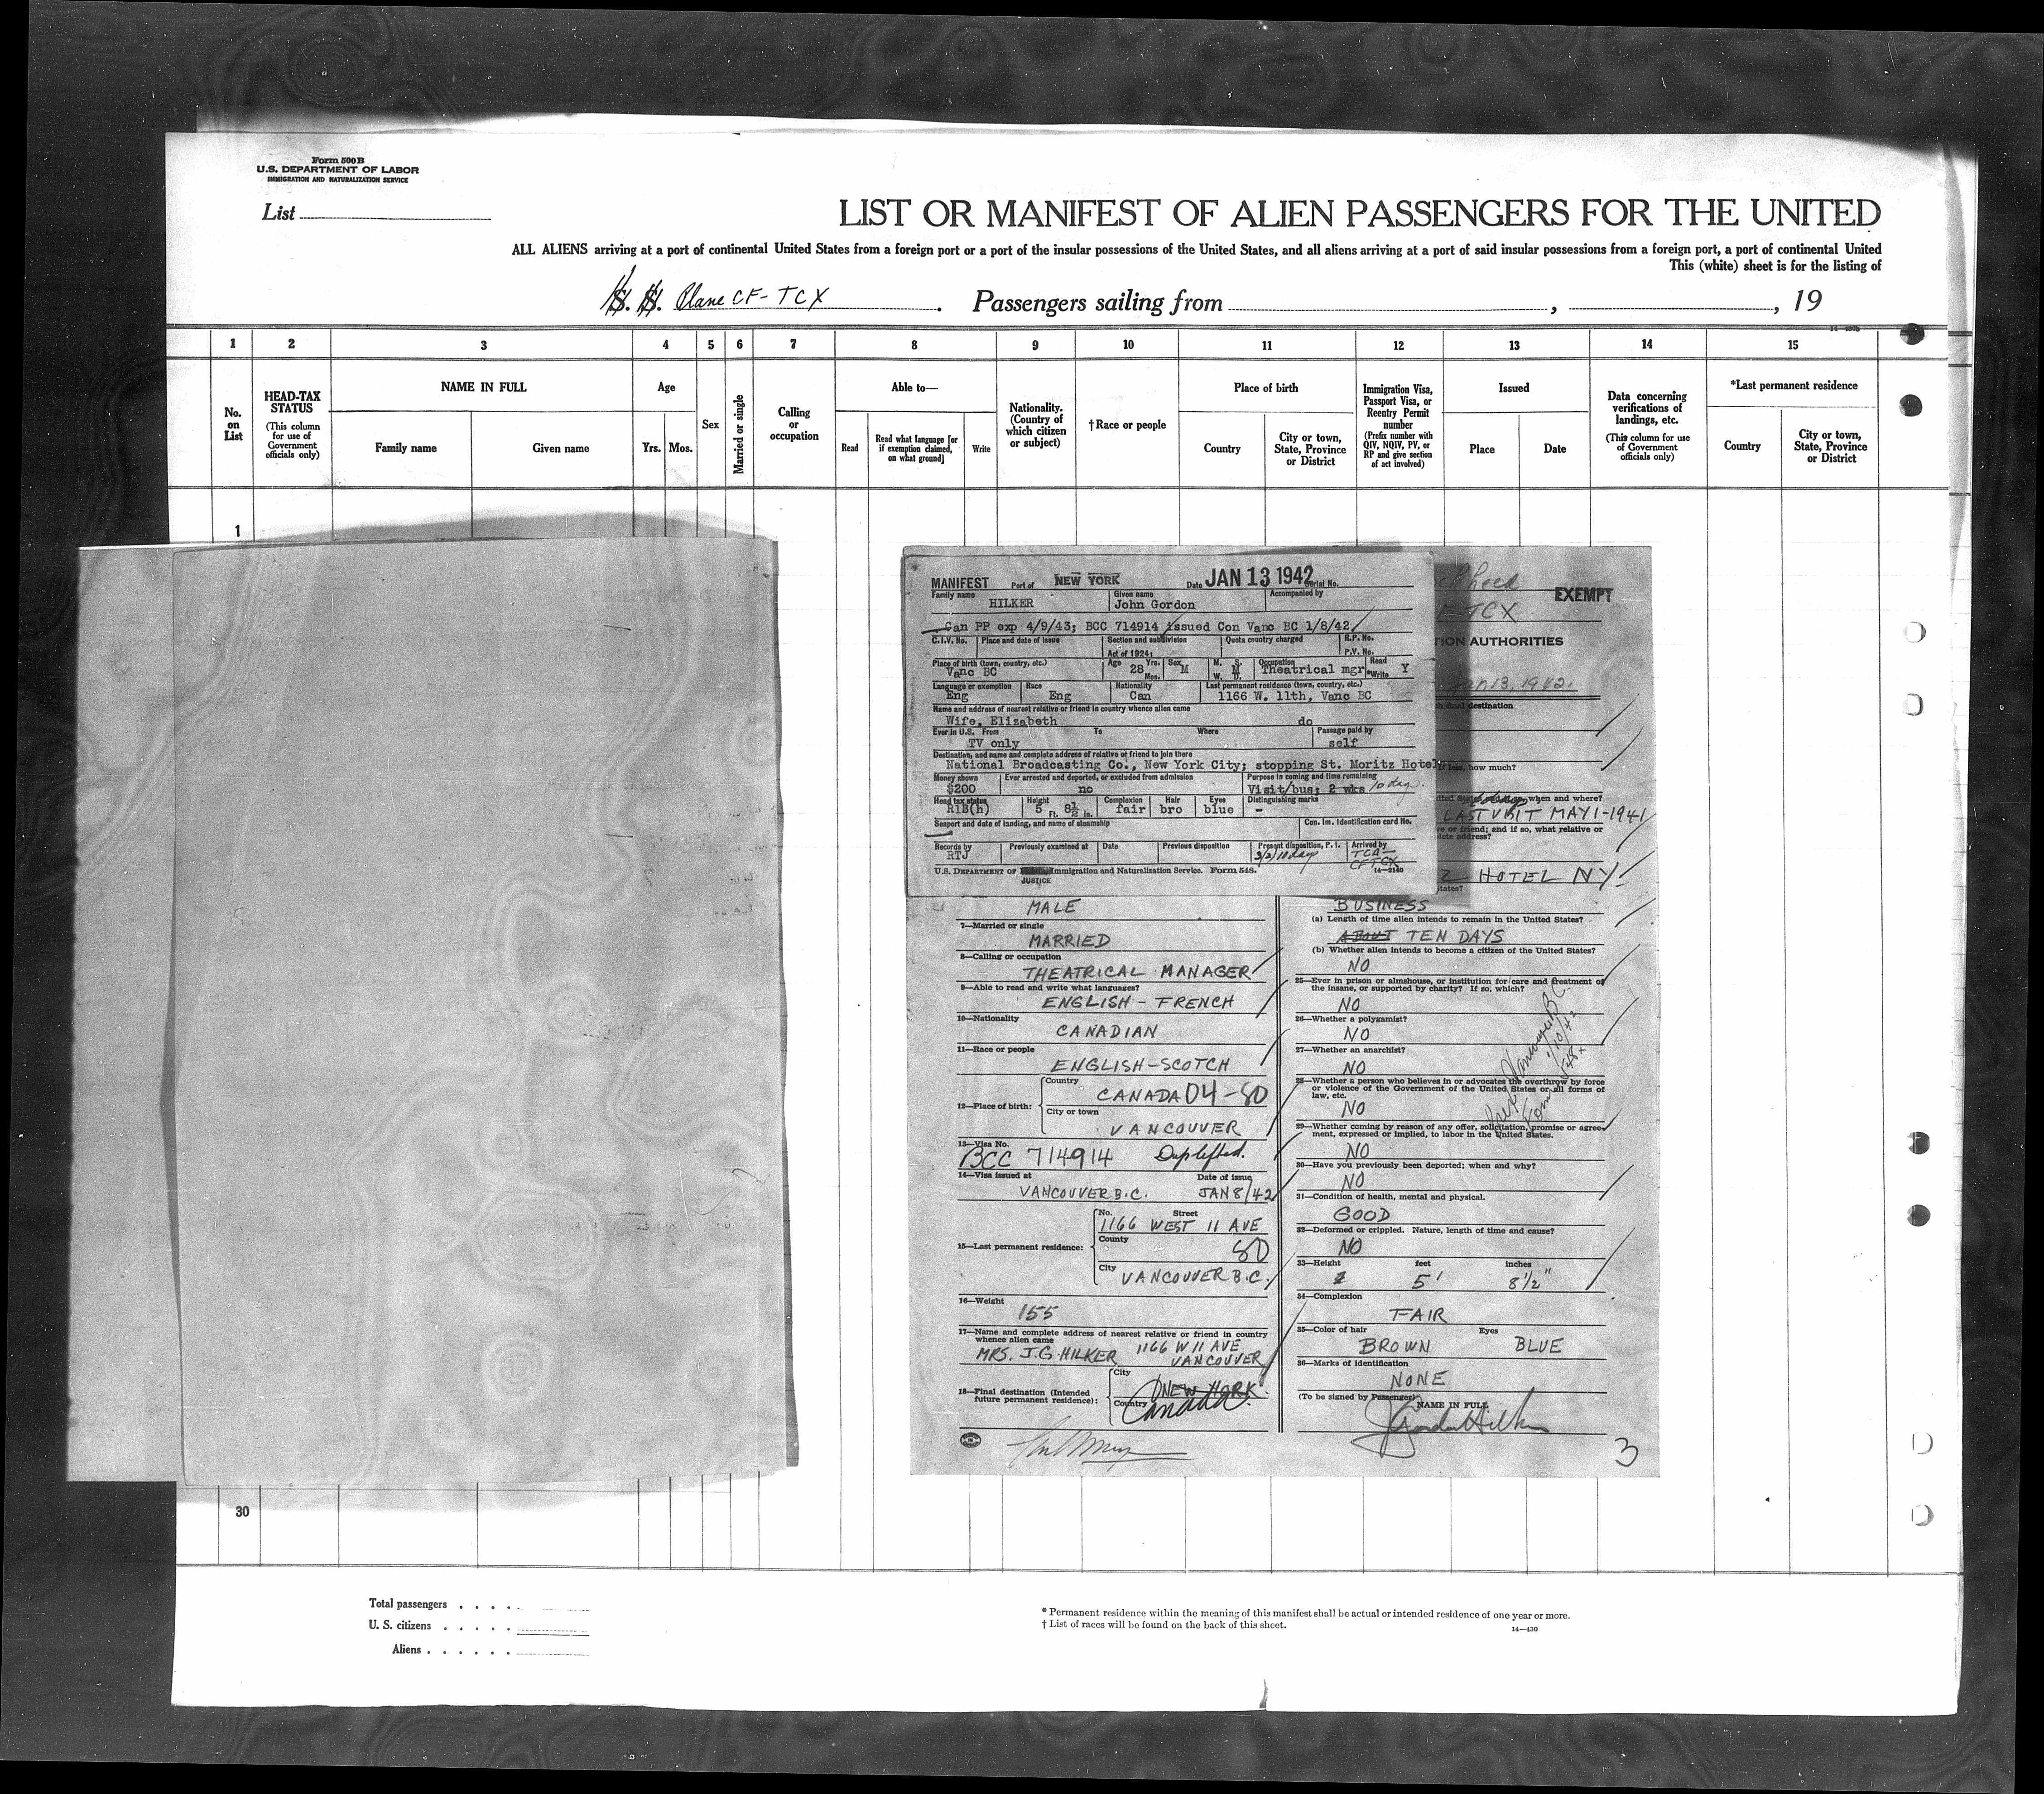 Form 500B
U.S. DEPARTMENT OF LABOR
IMMIGRATION AND NATURALIZATION SERVICE
List
LIST OR MANIFEST OF ALIEN PASSENGERS FOR THE UNITED
ALL ALIENS arriving at a port of continental United States from a foreign port or a port of the insular possessions of the United States, and all aliens arriving at a port of said insular possessions from a foreign port, a port of continental United
This (white) sheet is for the listing of
S. S. Plane CF-TCX. Passengers sailing from , , 19
1 2 3 4 5 6 7 8 9 10 11 12 13 14 15
No. on List
HEAD-TAX STATUS
(This column for use of Government officials only)
NAME IN FULL
Family name Given name
Age
Yrs. Mos.
Sex
Married or single
Calling or occupation
Able to—
Read
Read what language [or if exemption claimed, on what ground]
Write
Nationality. (Country of which citizen or subject)
† Race or people
Place of birth
Country
City or town, State, Province or District
Immigration Visa, Passport Visa, or Reentry Permit number
(Prefix number with QIV, NQIV, PV, or RP and give section of act involved)
Issued
Place Date
Data concerning verifications of landings, etc.
(This column for use of Government officials only)
*Last permanent residence
Country
City or town, State, Province or District
1
MANIFEST Port of NEW YORK Date JAN 13 1942 Serial No.
Family name Given name Accompanied by
HILKER John Gordon
Can PP exp 4/9/43; BCC 714914 issued Con Vanc BC 1/8/42
C.I.V. No. Place and date of issue Section and subdivision Quota country charged R.P. No.
Act of 1924: P.V. No.
Place of birth (town, country, etc.) Age Yrs. Sex M. S. Occupation Read
Vanc BC 28 M M Theatrical mgr Y
Mos. W. D. Write
Language or exemption Race Nationality Last permanent residence (town, country, etc.)
Eng Eng Can 1166 W. 11th, Vanc BC
Name and address of nearest relative or friend in country whence alien came
Wife, Elizabeth do
Ever in U.S. From To Where Passage paid by
TV only self
Destination, and name and complete address of relative or friend to join there
National Broadcasting Co., New York City; stopping St. Moritz Hotel
Money shown Ever arrested and deported, or excluded from admission Purpose in coming and time remaining
$200 no Visit/bus; 2 wks 10 days.
Head tax status Height Complexion Hair Eyes Distinguishing marks
R1B(h) 5 Ft. 8½ In. fair bro blue -
Seaport and date of landing, and name of steamship Con. Im. Identification card No.
Records by Previously examined at Date Previous disposition Present disposition, P. I. Arrived by
RTJ 3/2/10 days TCA- CFTCX
U.S. DEPARTMENT OF JUSTICE Immigration and Naturalization Service. Form 548. 14—2140
EXEMPT
TCX
ION AUTHORITIES
Jan 13, 1942.
final destination
how much?
when and where?
LAST VISIT MAY 1-1941
or friend; and if so, what relative or
address?
Z HOTEL NY.
States?
MALE
7—Married or single
MARRIED
8—Calling or occupation
THEATRICAL MANAGER
9—Able to read and write what languages?
ENGLISH - FRENCH
10—Nationality
CANADIAN
11—Race or people
ENGLISH-SCOTCH
12—Place of birth:
Country
CANADA 04-80
City or town
VANCOUVER
13—Visa No.
BCC 714914 Dup lifted.
14—Visa issued at Date of issue
VANCOUVER B.C. JAN 8/42
15—Last permanent residence:
No. Street
1166 WEST 11 AVE
County
80
City
VANCOUVER B.C.
16—Weight
155
17—Name and complete address of nearest relative or friend in country whence alien came
MRS. J.G. HILKER 1166 W 11 AVE VANCOUVER
18—Final destination (Intended future permanent residence):
City
NEW YORK
Country
Canada
BUSINESS
(a) Length of time alien intends to remain in the United States?
ABOUT TEN DAYS
(b) Whether alien intends to become a citizen of the United States?
NO
25—Ever in prison or almshouse, or institution for care and treatment of the insane, or supported by charity? If so, which?
NO
26—Whether a polygamist?
NO
27—Whether an anarchist?
NO
28—Whether a person who believes in or advocates the overthrow by force or violence of the Government of the United States or all forms of law, etc.
NO
29—Whether coming by reason of any offer, solicitation, promise or agreement, expressed or implied, to labor in the United States.
NO
30—Have you previously been deported; when and why?
NO
31—Condition of health, mental and physical.
GOOD
32—Deformed or crippled. Nature, length of time and cause?
NO
33—Height feet inches
5' 8 1/2"
34—Complexion
FAIR
35—Color of hair Eyes
BROWN BLUE
36—Marks of identification
NONE
(To be signed by Passenger) NAME IN FULL
J Gordon Hilker
Vancouver B.C.
1/10/42
Form 548
3
30
Total passengers
U. S. citizens
Aliens
* Permanent residence within the meaning of this manifest shall be actual or intended residence of one year or more.
† List of races will be found on the back of this sheet.
14—430